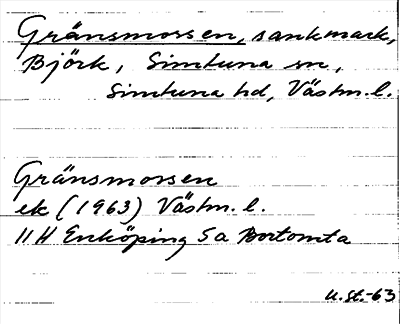 Gränsmossen, sankmark,
Björk, Simtuna sn,
Simtuna hd, Västm. l.
Gränsmossen
ek (1963) Västm. l.
11 H Enköping 5a Bortomta
U.St.-63